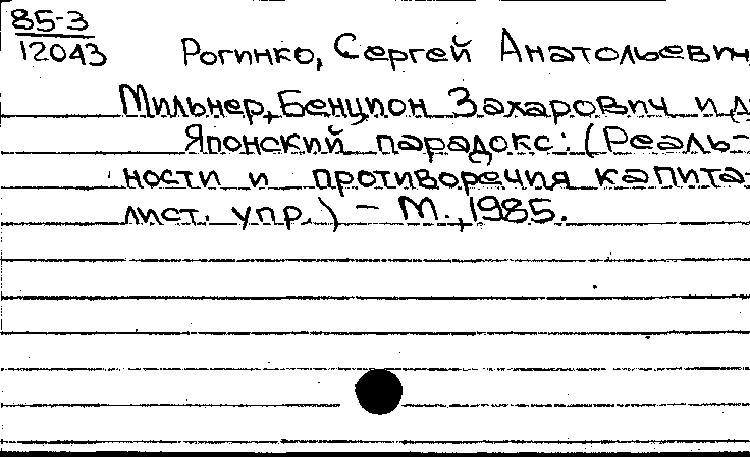 85-3
12043
Рогинко, Сергей Анатольевич
Мильнер, Бенцион Захарович и д
Японский парадокс: (Реаль-
ности и противоречия капита-
лист. упр.) – М., 1985.